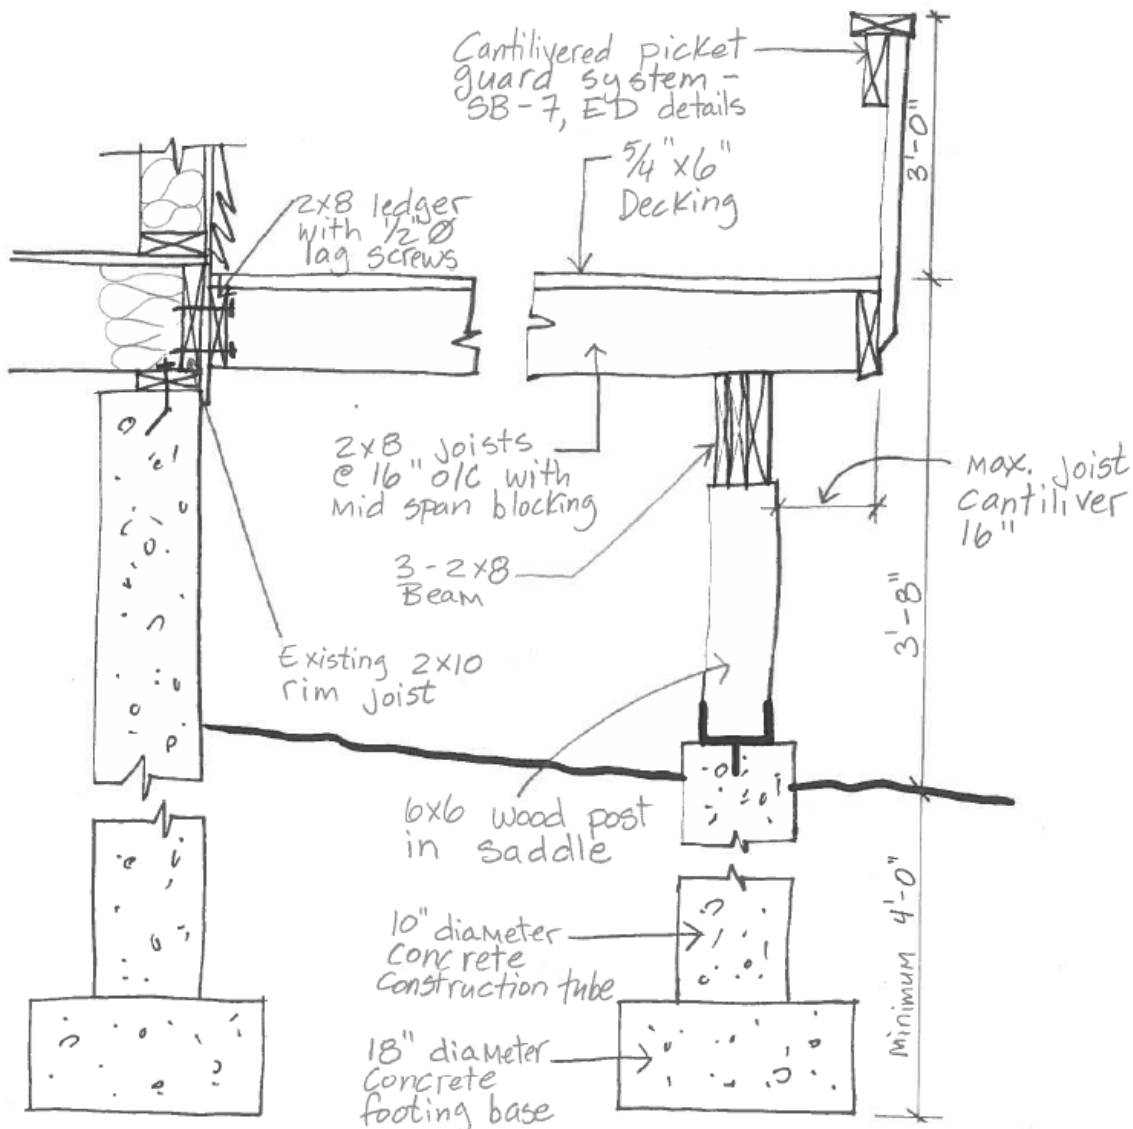 Cantilivered picket
guard system -
SB-7, ED details
3'-0"
5/4" x 6"
Decking
2x8 ledger
with 1/2" Ø
lag screws
2x8 joists
@ 16" o/c with
Mid span blocking
max. joist
cantiliver
16"
3-2x8
Beam
3'-8"
Existing 2x10
rim joist
6x6 wood post
in saddle
10" diameter
Concrete
Construction tube
Minimum 4'-0"
18" diameter
Concrete
footing base